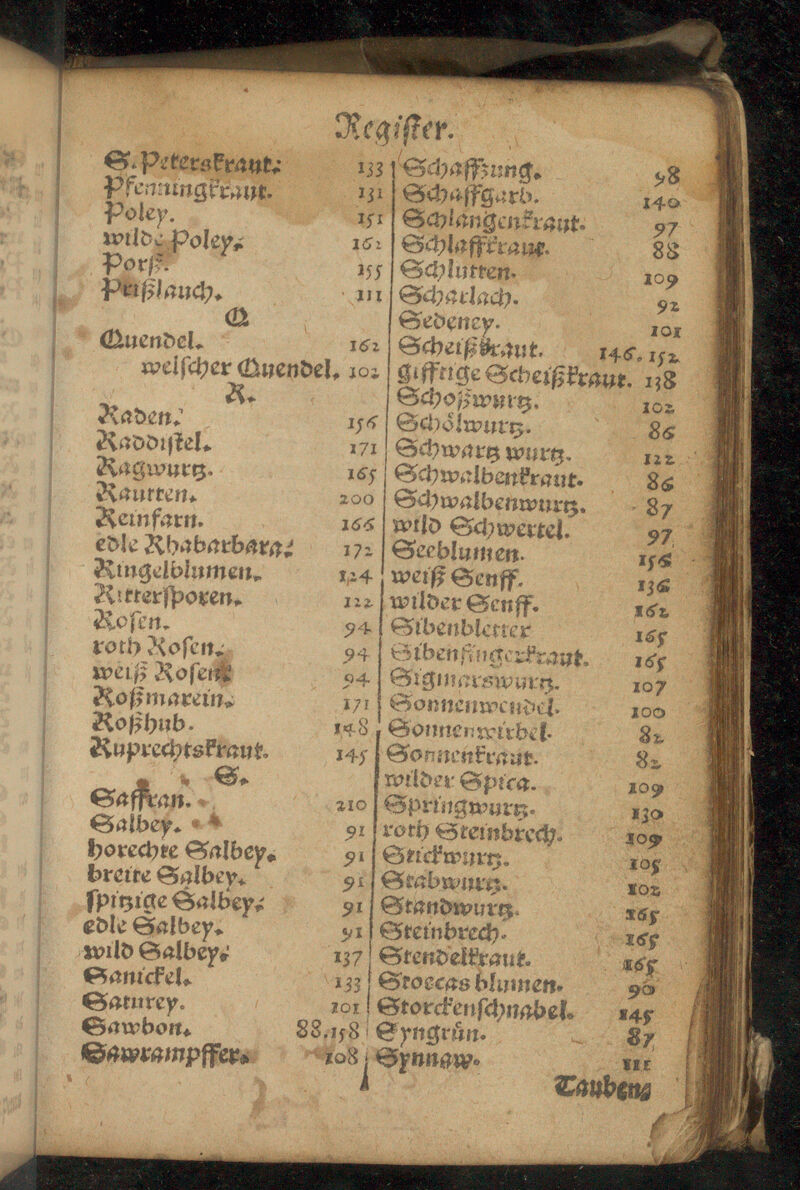 Regiſter.
S. Peterskraut. 133
Pfenningkraut. 131
Poley. 151
wilde Poley. 162
Porß. 155
Prißlauch. 111
Q
Quendel. 162
welſcher Quendel. 102
R.
Raden. 156
Raddiſtel. 171
Ragwurtz. 165
Rautten. 200
Reinfarn. 166
edle Rhabarbara. 172
Ringelblumen. 124
Ritterſporen. 122
Roſen. 94
roth Roſen. 94
weiß Roſen 94
Roßmarein. 171
Roßhub. 148
Ruprechtskraut. 145
S.
Saffran. 210
Salbey. 91
horechte Salbey. 91
breite Salbey. 91
ſpitzige Salbey. 91
edle Salbey. 91
wild Salbey. 137
Sanickel. 133
Saturey. 101
Sawbon. 88.158
Sawrampffer. 108
Schaffzung. 98
Schaffgarb. 140
Schlangenkraut. 97
Schlaffkraut. 88
Schlutten. 109
Scharlach. 92
Sedeney. 101
Scheißkraut. 146. 152
gifftige Scheißkraut. 138
Schoßwurtz. 102
Schölwurtz. 86
Schwartz wurtz. 122
Schwalbenkraut. 86
Schwalbenwurtz. 87
wild Schwertel. 97
Seeblumen. 156
weiß Senff. 136
wilder Senff. 162
Sibenbletter 165
Sibenfingerkraut. 165
Sigmarswurtz. 107
Sonnenwendel. 100
Sonnenwirbel. 82
Sonnenkraut. 82
wilder Spica. 109
Springwurtz. 130
roth Steinbrech. 109
Stickwurtz. 105
Stabwurtz. 102
Standwurtz. 165
Steinbrech. 165
Stendelkraut. 165
Stoecas blumen. 90
Storckenſchnabel. 145
Syngrün. 87
Synnaw. 111
Tauben⸗